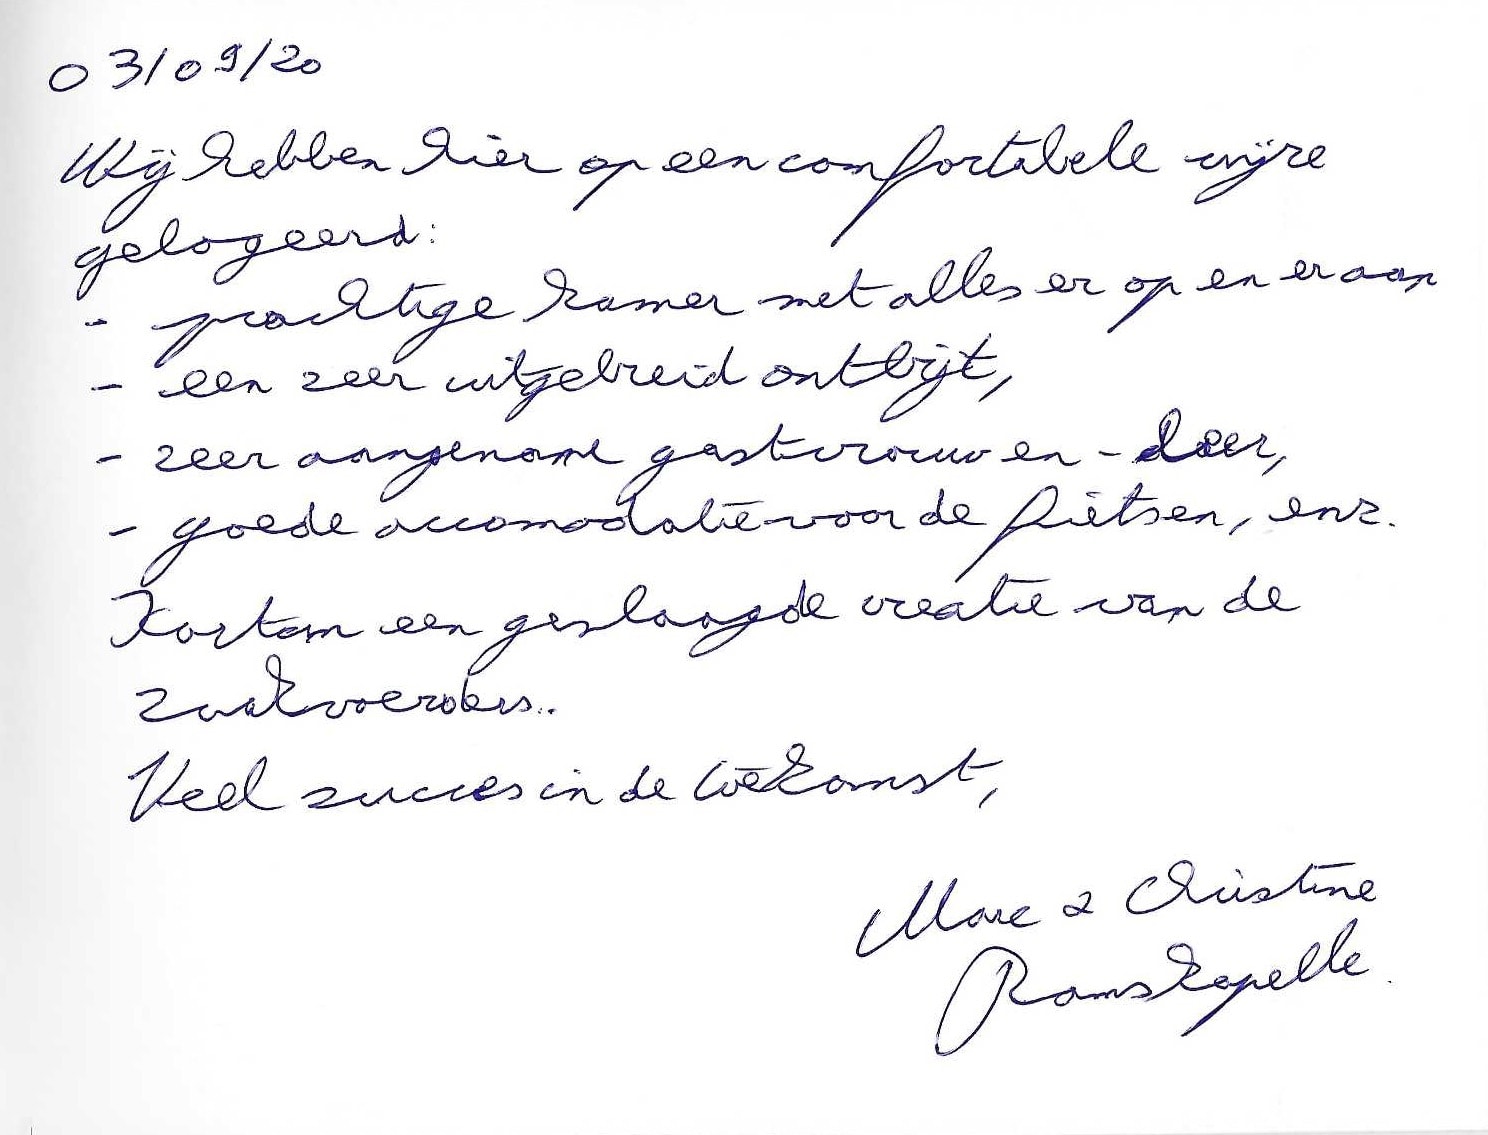 03/09/20
Wij hebben hier op een comfortabele wijze
gelogeerd:
- prachtige kamer met alles er op en er aan
- een zeer uitgebreid ontbijt,
- zeer aangename gastvrouw en -heer,
- goede accomodatie voor de fietsen, enz.
Kortom een geslaagde creatie van de
zaakvoerders..
Veel succes in de toekomst,
Marc & Christine
Ramskapelle.